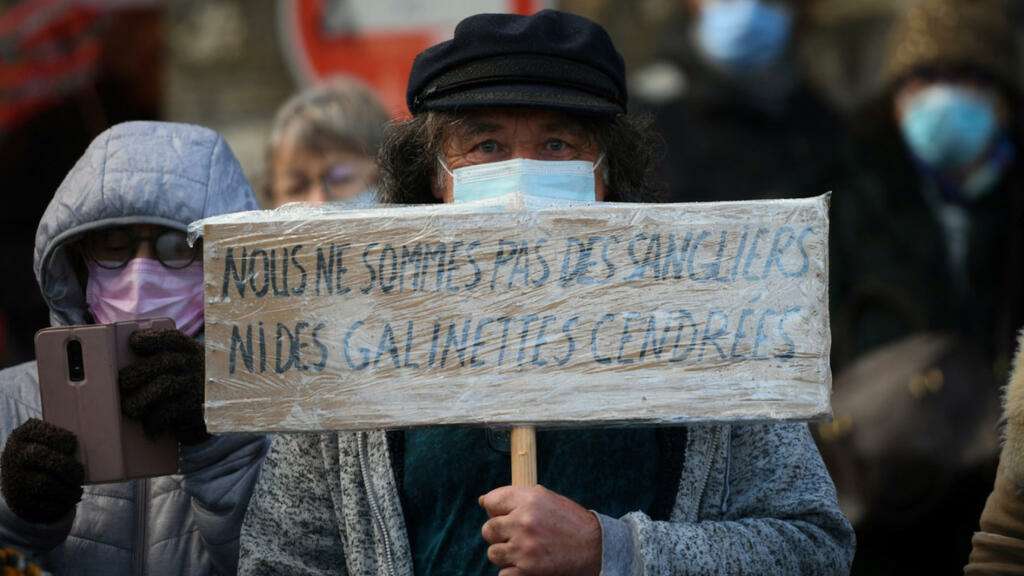 NOUS NE SOMMES PAS DES SANGLIERS
NI DES GALINETTES CENDRÉES